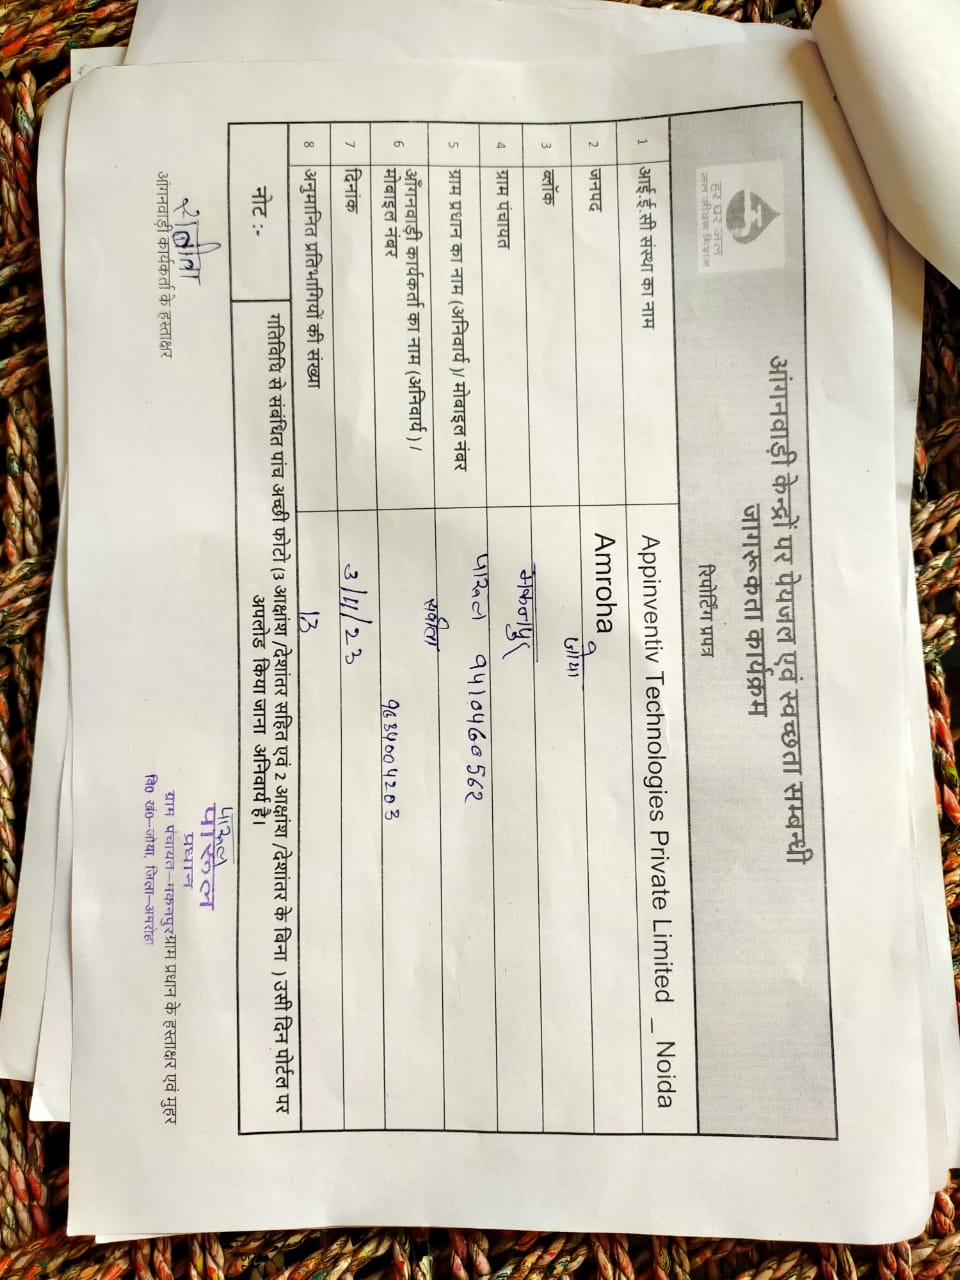 हर घर जल
जल जीवन मिशन
आंगनवाड़ी केन्द्रों पर पेयजल एवं स्वच्छता सम्बन्धी
जागरूकता कार्यक्रम
रिपोर्टिंग प्रपत्र
1 आई.ई.सी संस्था का नाम Appinventiv Technologies Private Limited _ Noida
2 जनपद Amroha
3 ब्लॉक जोया
4 ग्राम पंचायत मकनपुर
5 ग्राम प्रधान का नाम (अनिवार्य)/ मोबाइल नंबर पारूल 9410460562
6 आँगनवाड़ी कार्यकर्ता का नाम (अनिवार्य) / सविता
मोबाइल नंबर 9634004203
7 दिनांक
8 अनुमानित प्रतिभागियों की संख्या 13
नोट :- गतिविधि से संबंधित पांच अच्छी फोटो (3 आक्षांश /देशांतर सहित एवं 2 आक्षांश /देशांतर के बिना ) उसी दिन पोर्टल पर
अपलोड किया जाना अनिवार्य है।
पारूल
पारूल
प्रधान
ग्राम पंचायत-मकनपुर
वि0 खं0-जोया, जिला-अमरोहा
आंगनवाड़ी कार्यकर्ता के हस्ताक्षर
ग्राम प्रधान के हस्ताक्षर एवं मुहर